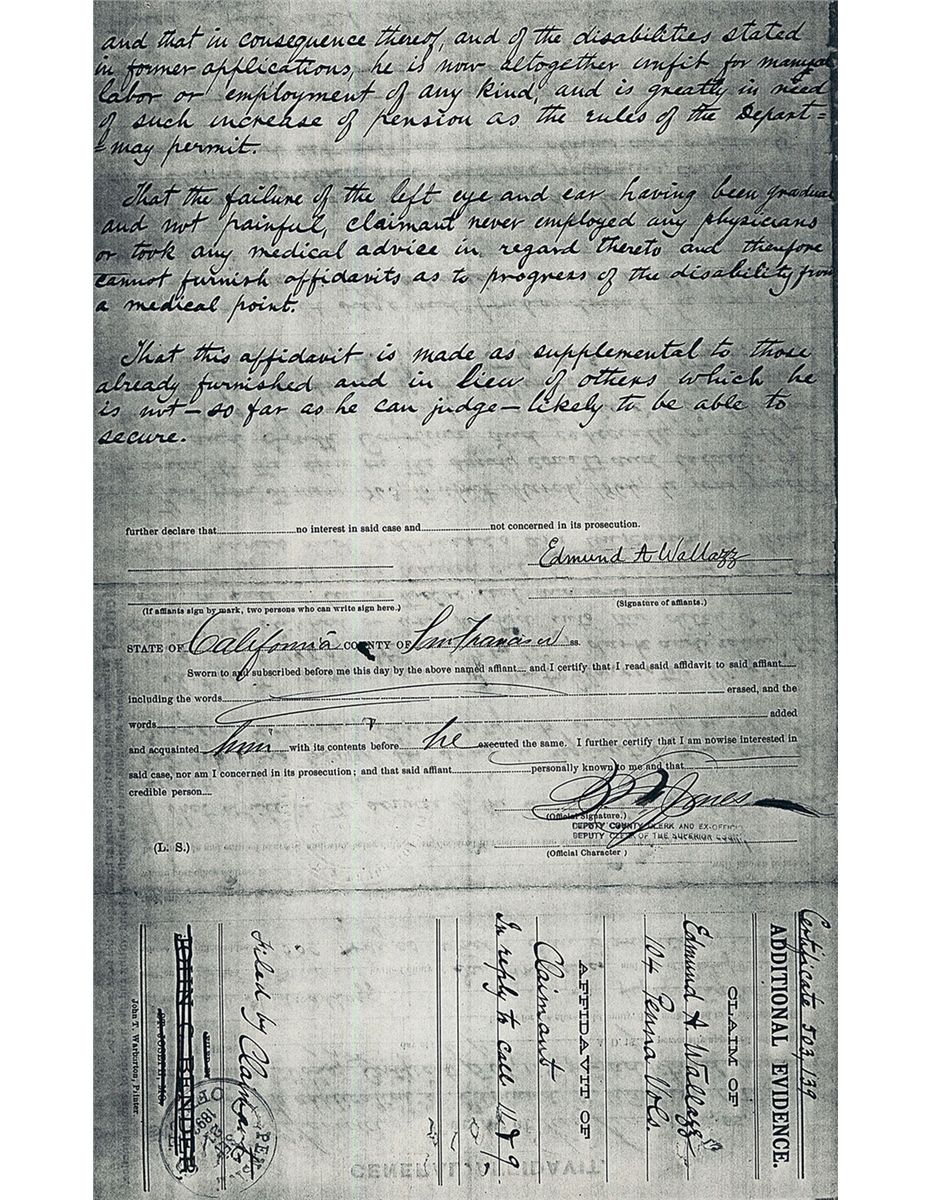 and that in consequence thereof, and of the disabilities stated
in former applications, he is now altogether unfit for manual
labor or employment of any kind, and is greatly in need
of such increase of pension as the rules of the Depart=
=may permit.
That the failure of the left eye and ear having been gradual
and not painful, claimant never employed any physicians
or took any medical advice in regard thereto and therefore
cannot furnish affidavits as to progress of the disability from
a medical point.
That this affidavit is made as supplemental to those
already furnished and in lieu of others which he
is not – so far as he can judge – likely to be able to
secure.
further declare that no interest in said case and not concerned in its prosecution.
Edmund A Wallazz
(If affiants sign by mark, two persons who can write sign here.)
(Signature of affiants.)
STATE OF California COUNTY OF San Francisco ss.
Sworn to and subscribed before me this day by the above named affiant and I certify that I read said affidavit to said affiant
including the words erased, and the
words added
and acquainted him with its contents before he executed the same. I further certify that I am nowise interested in
said case, nor am I concerned in its prosecution; and that said affiant personally known to me and that
credible person
Jones
(Official Signature.)
DEPUTY COUNTY CLERK AND EX-OFFICIO
DEPUTY CLERK OF THE SUPERIOR COURT
(L. S.)
(Official Character)
Certificate 503,139
ADDITIONAL EVIDENCE.
CLAIM OF
Edmund A Wallazz
104 Penna Vols.
AFFIDAVIT OF
Claimant
In reply to call
Filed by Claimant
FILED BY
JOHN C. BENDER,
ST. JOSEPH, MO.
John T. Warburton, Printer.
GENERAL AFFIDAVIT.